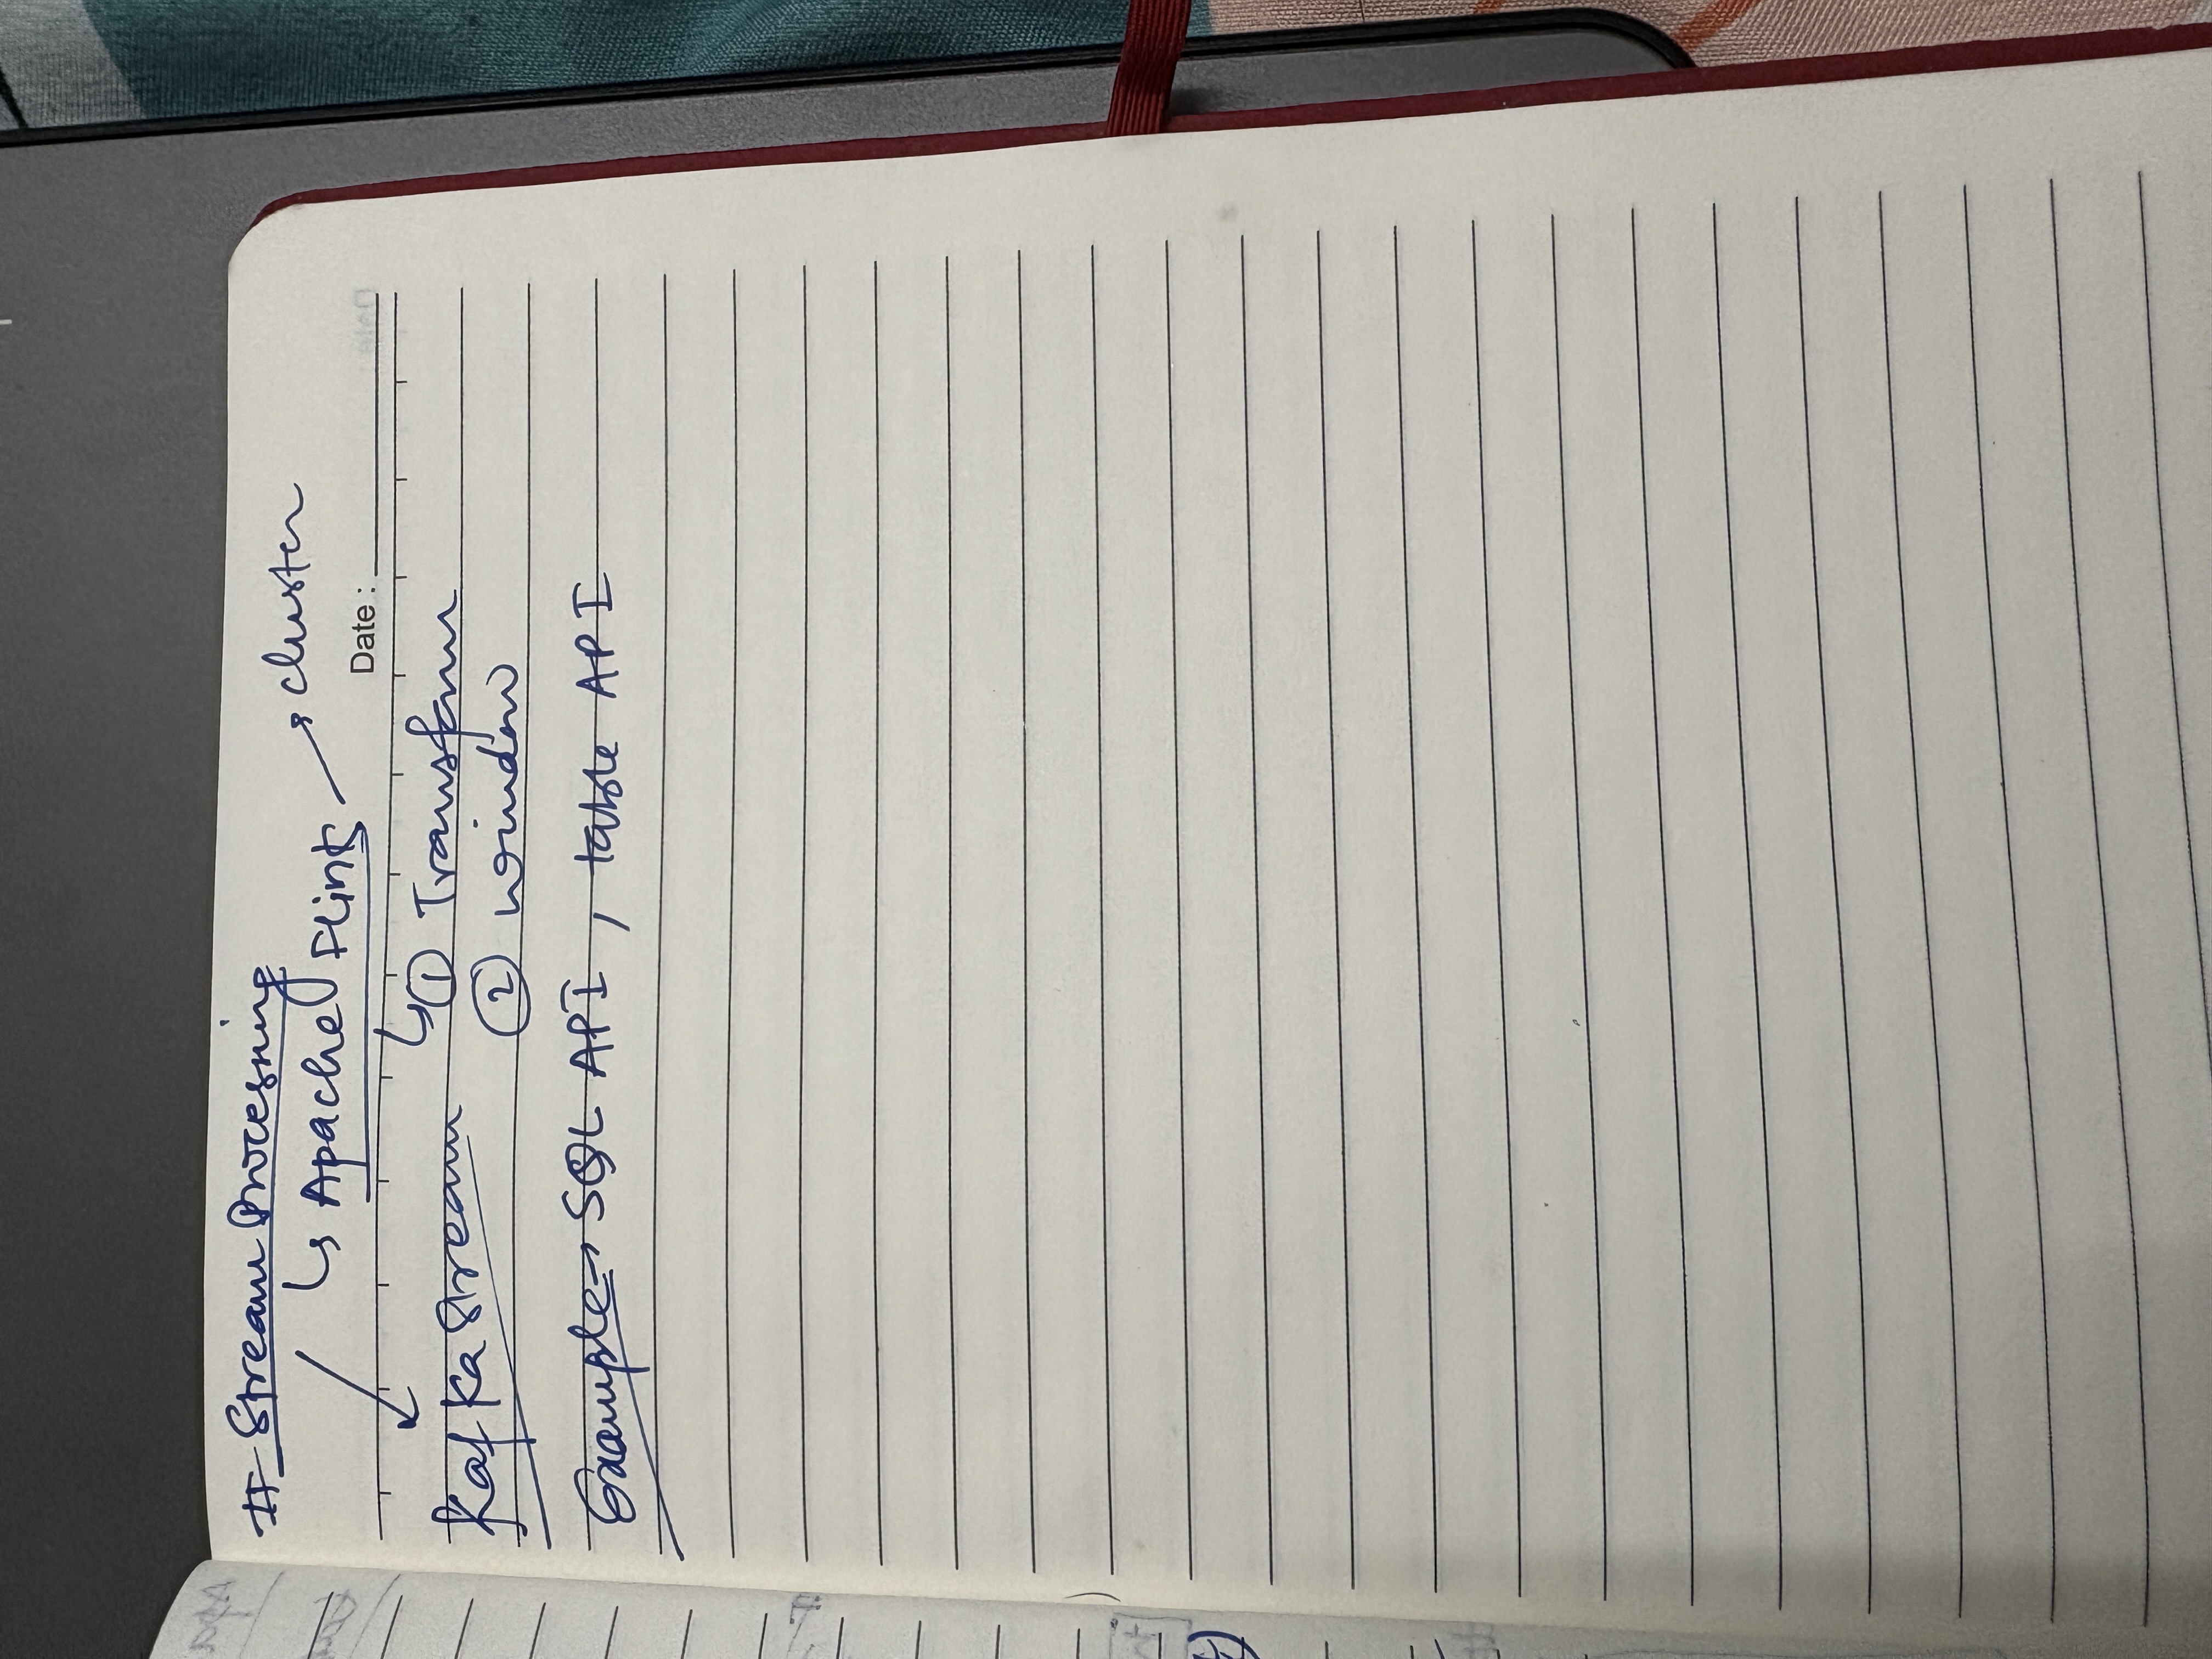 # Stream Processing
↳ Apache Flink → cluster
Date :
Kafka Stream
↳ ① Transform
② window
Example → SQL API , table API